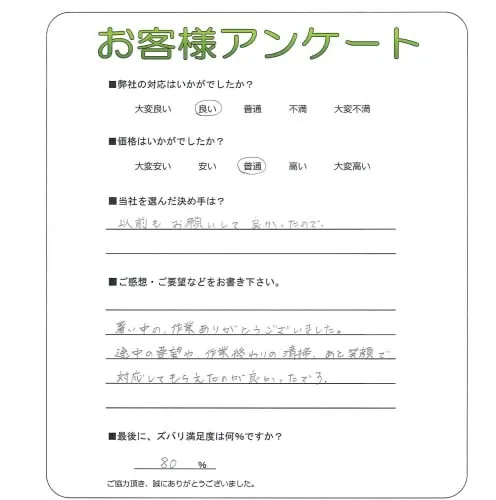 お客様アンケート
■弊社の対応はいかがでしたか？
大変良い 良い 普通 不満 大変不満
■価格はいかがでしたか？
大変安い 安い 普通 高い 大変高い
■当社を選んだ決め手は？
以前も お願いして 良かったので。
■ご感想・ご要望などをお書き下さい。
暑い中の、作業ありがとうございました。
途中の要望や、作業終わりの清掃、あと笑顔で
対応してもらえたのが良かったです。
■最後に、ズバリ満足度は何%ですか？
80 %
ご協力頂き、誠にありがとうございました。